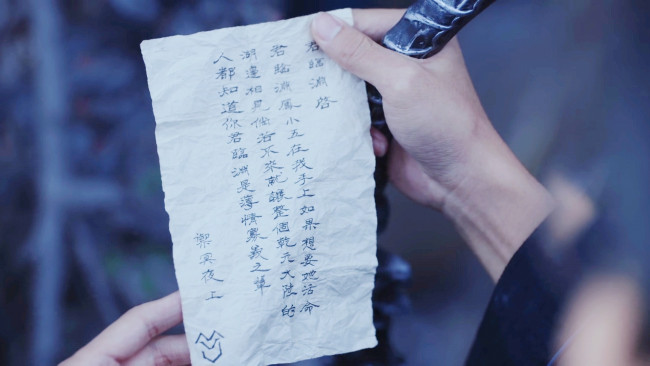 君臨淵啓
君臨淵鳳小五在我手上如果想要她活命
湖邊相見倘若不來就讓整個乾元大陸的
人都知道你君臨淵是薄情寡義之輩
禦冥夜上